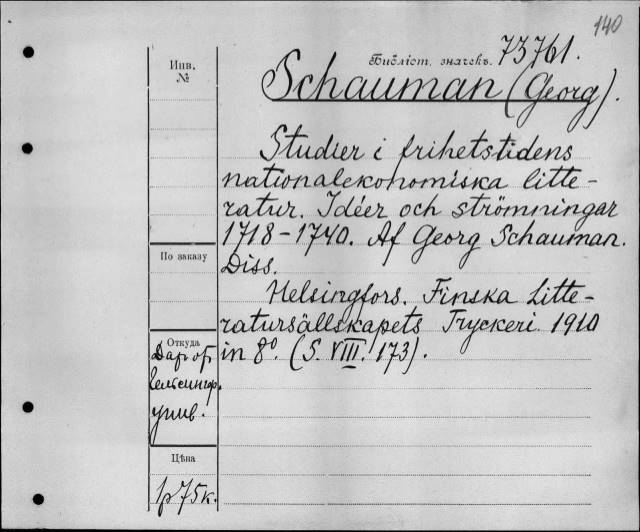 140
Библіот. значекъ. 73761.
Инв.
№
Schauman (Georg).
Studier i frihetstidens
nationalekonomiska litte-
ratur. Idéer och strömningar
1718-1740. Af Georg Schauman.
По заказу
Diss.
Helsingfors. Finska Litte-
ratursällskapets Tryckeri 1910
in 8º. (5. VIII. 173).
Откуда
Дар от
Гельсингф.
унив.
Цѣна
1р 75к.